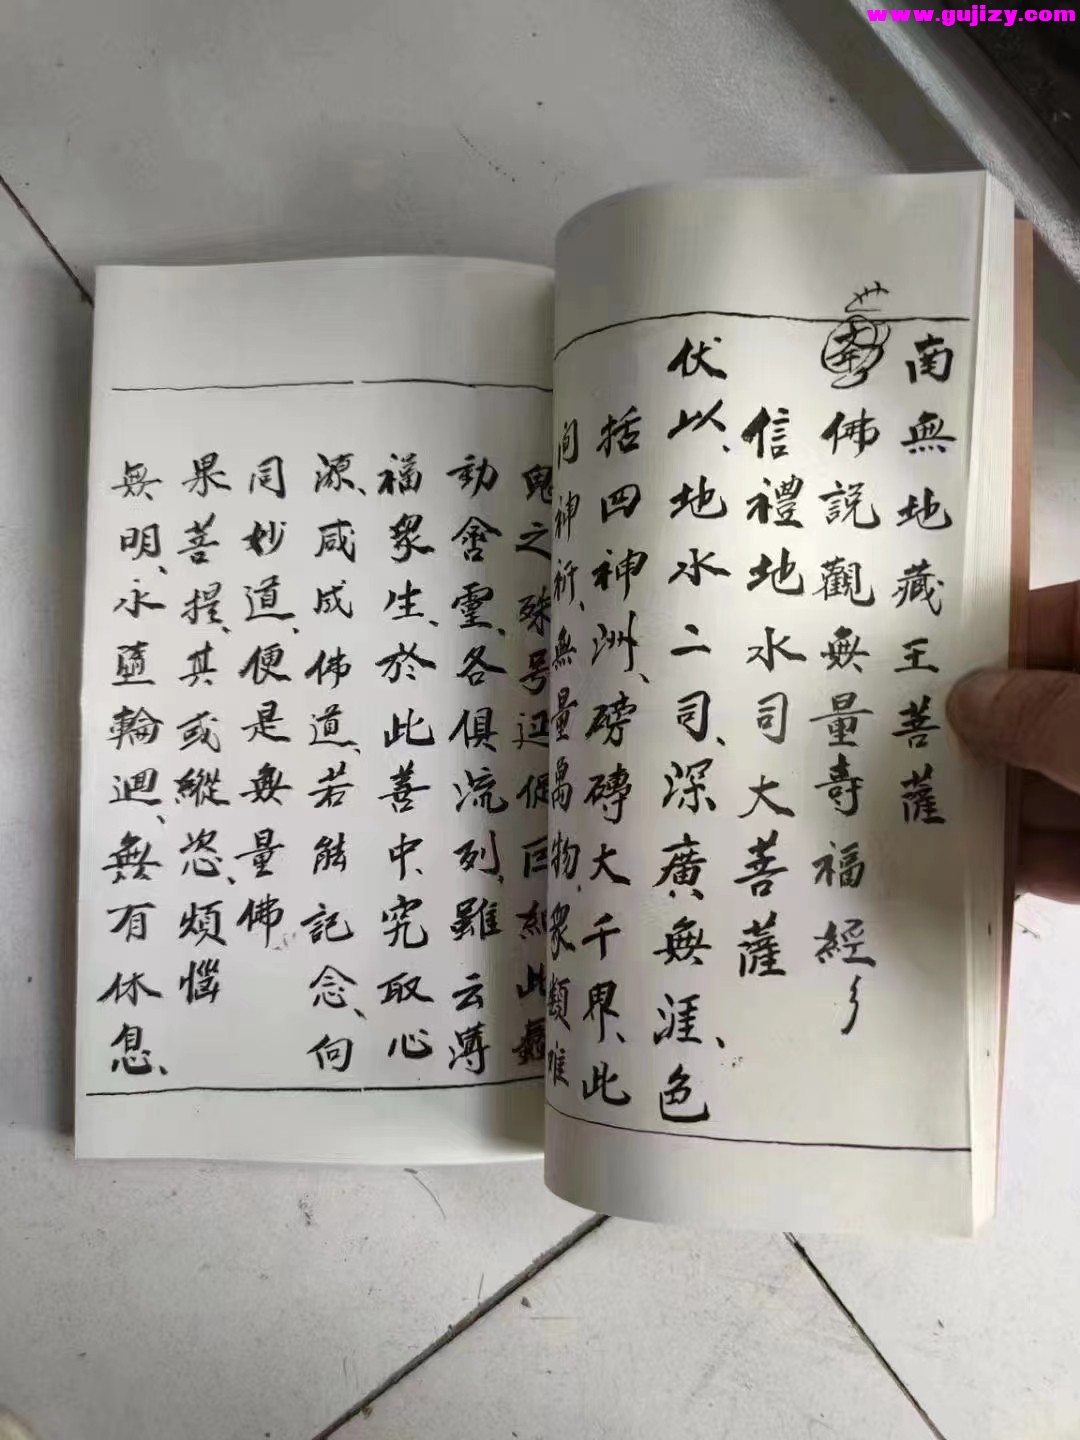 www.gujizy.com
南無地藏王菩薩
世
佛說觀無量壽福經
信禮地水司大菩薩
伏以、地水二司、深廣無涯、色
括四神洲、磅磚大千界、此
間神祈、無量萬物、衆類难
鬼之殊号、迢促巨細、此蠢
動含靈、各俱流列、雖云薄
福衆生、於此善中、究取心
源、咸成佛道、若能記念、向
同妙道、便是無量佛
果菩提、其或縱恣、煩惱
無明、永墮輪迴、無有休息、